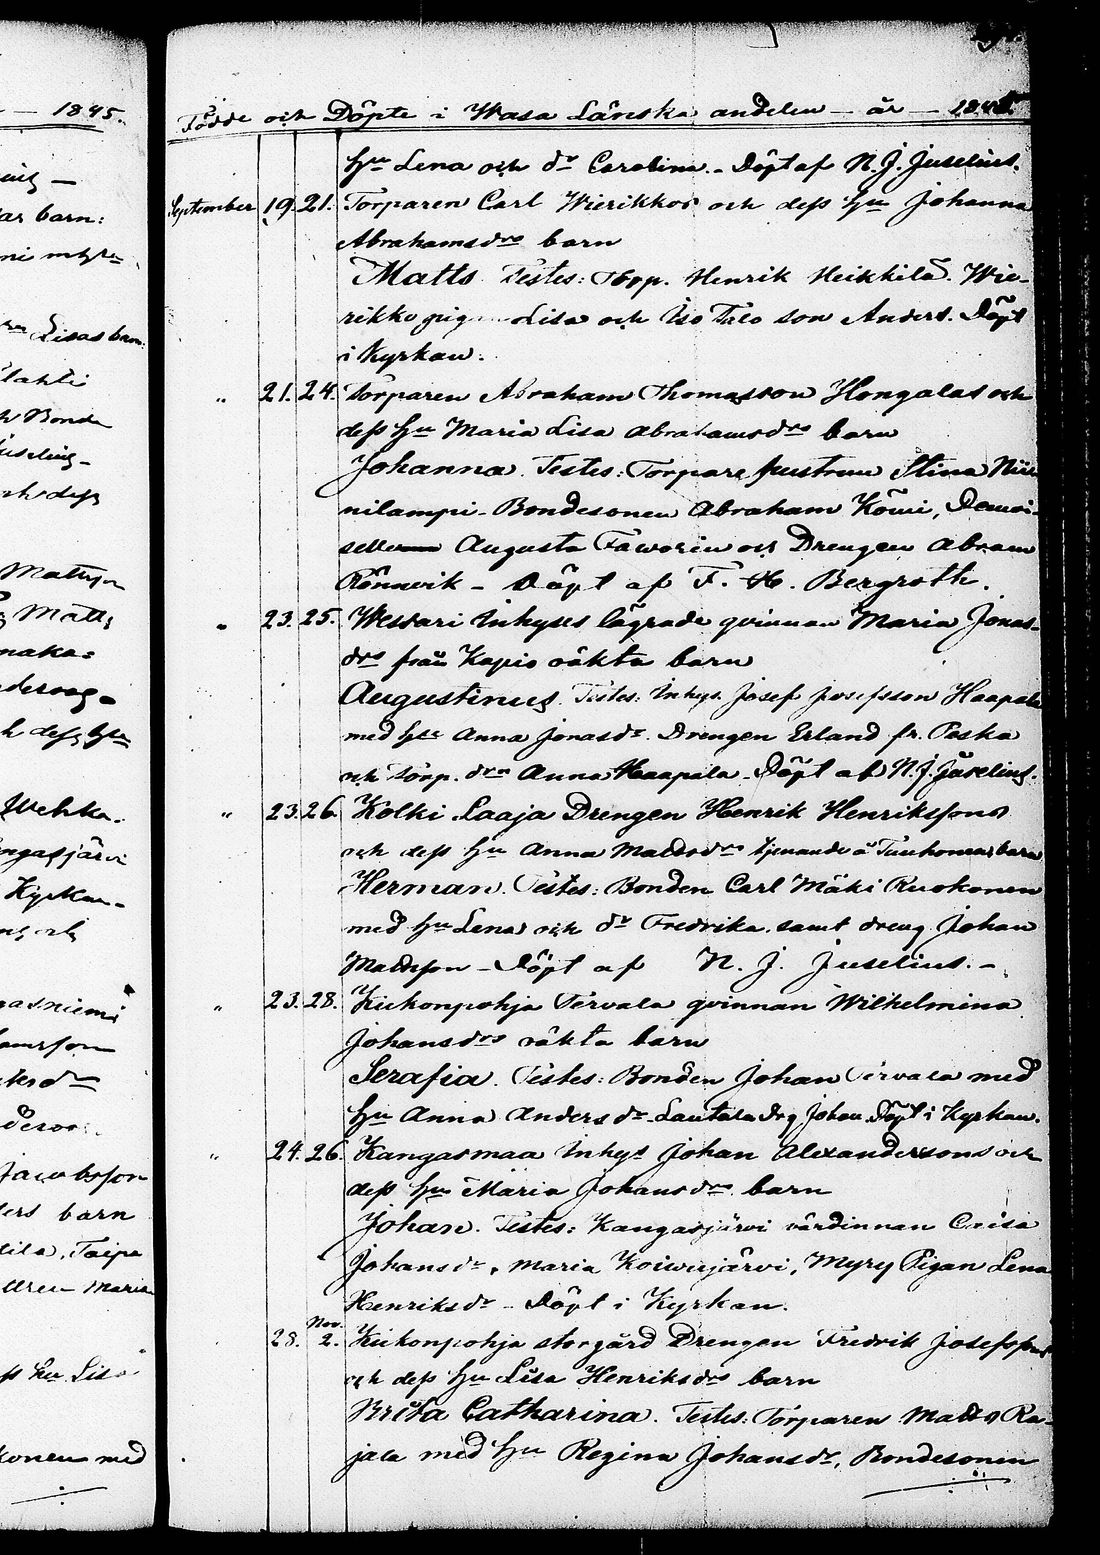 1845.
Födde och Döpte i Wasa Länska andelen — år — 1845.
hu Lena och dr Carolina. - Döpt af N. J. Juselius.
September 19. 21. Torparen Carl Wierikkos och dess hu Johanna
Abrahamsdrs barn
Matts. Testes: Torp. Henrik Heikkilä. Wie-
rikko pig Lisa och Iso Talo son Anders. Döpt
i Kyrkan.
" 21. 24. Torparen Abraham Thomasson Hongalas och
dess hu Maria Lisa Abrahamsdrs barn
Johanna. Testes: Torpare hustrun Stina Nii-
nilampi - Bondesonen Abraham Kömi, Demoi-
selle Augusta Faworin och Drengen Abram
Rönnvik - Döpt af F. H. Bergroth.
" 23. 25. Wessari Inhyses lägrade qvinnan Maria Jonas-
drs från Kapio oäkta barn
Augustinus. Testes: Inhys. Josef Josefsson Haapala
med hu Anna Jonasdr. Drengen Erland fr. Peska
och Torp. drn Anna Haapala - Döpt af N. J. Juselius.
" 23. 26. Kolki Laaja Drengen Henrik Henrikssons
och dess hu Anna Mattsdrs tjenande å Tunkonens barn
Herman. Testes: Bonden Carl Mäki Ruokonen
med hu Lena och dr Fredrika samt dreng Johan
Mattsson - Döpt af N. J. Juselius. -
" 23. 28. Kiikonpohja Tervala qvinnan Wilhelmina
Johansdrs oäkta barn
Serafia. Testes: Bonden Johan Tervala med
hu Anna Andersdr - Lautala Drg Johan. Döpt i Kyrkan.
" 24. 26. Kangasmaa Inhys Johan Alexanderssons och
dess hu Maria Johansdrs barn
Johan. Testes: Kangasjärvi värdinnan Caisa
Johansdr, Maria Koiwujärvi, Myry Pigan Lena
Henriksdr - Döpt i Kyrkan.
28. Nov. 2. Kiikonpohja storgård Drengen Fredrik Josefssons
och dess hu Lisa Henriksdrs barn
Brita Catharina. Testes: Torparen Matts Ra-
jala med hu Regina Johansdr, Bondesonen